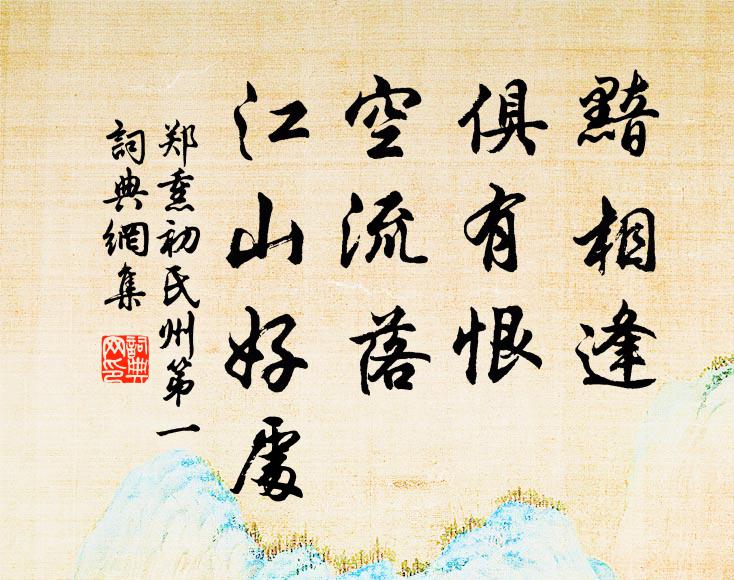 黯相逢
俱有恨
空流落
江山好處
郑熏初氏州第一
詞典網集
詞典網印